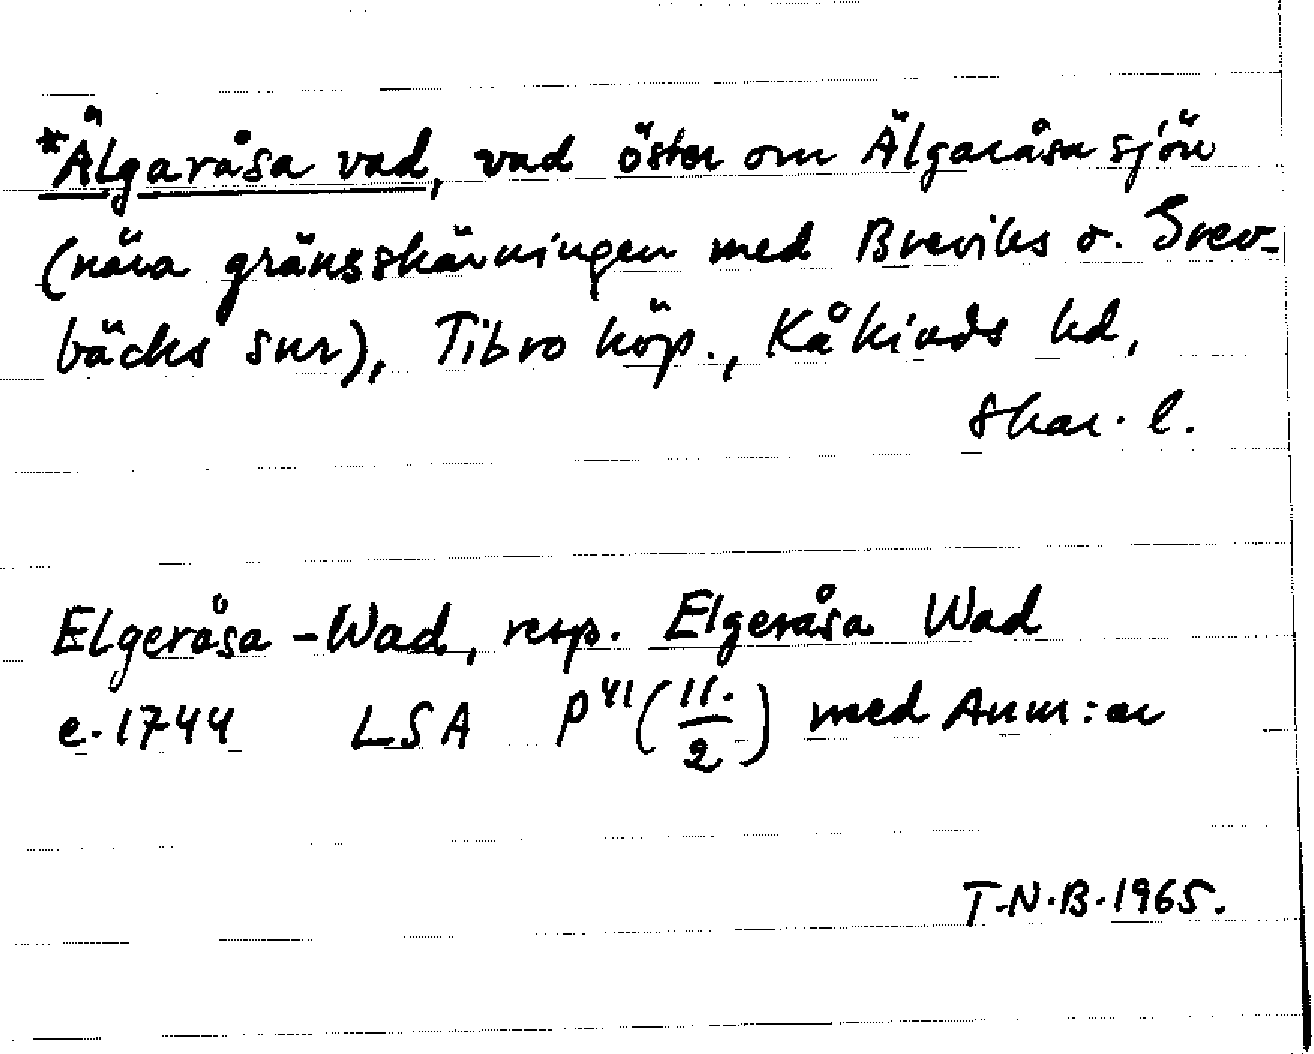 *Älgaråsa vad, vad öster om Älgaråsasjön
(nära gränsskärningen med Breviks o. Svev-
bäcks snr), Tibro köp., Kåkinds hd,
Skar. l.
Elgeråsa -Wad, resp. Elgeråsa Wad
c. 1744 LSA P 41 (11./2) med Anm:ar
T.N.B. 1965.